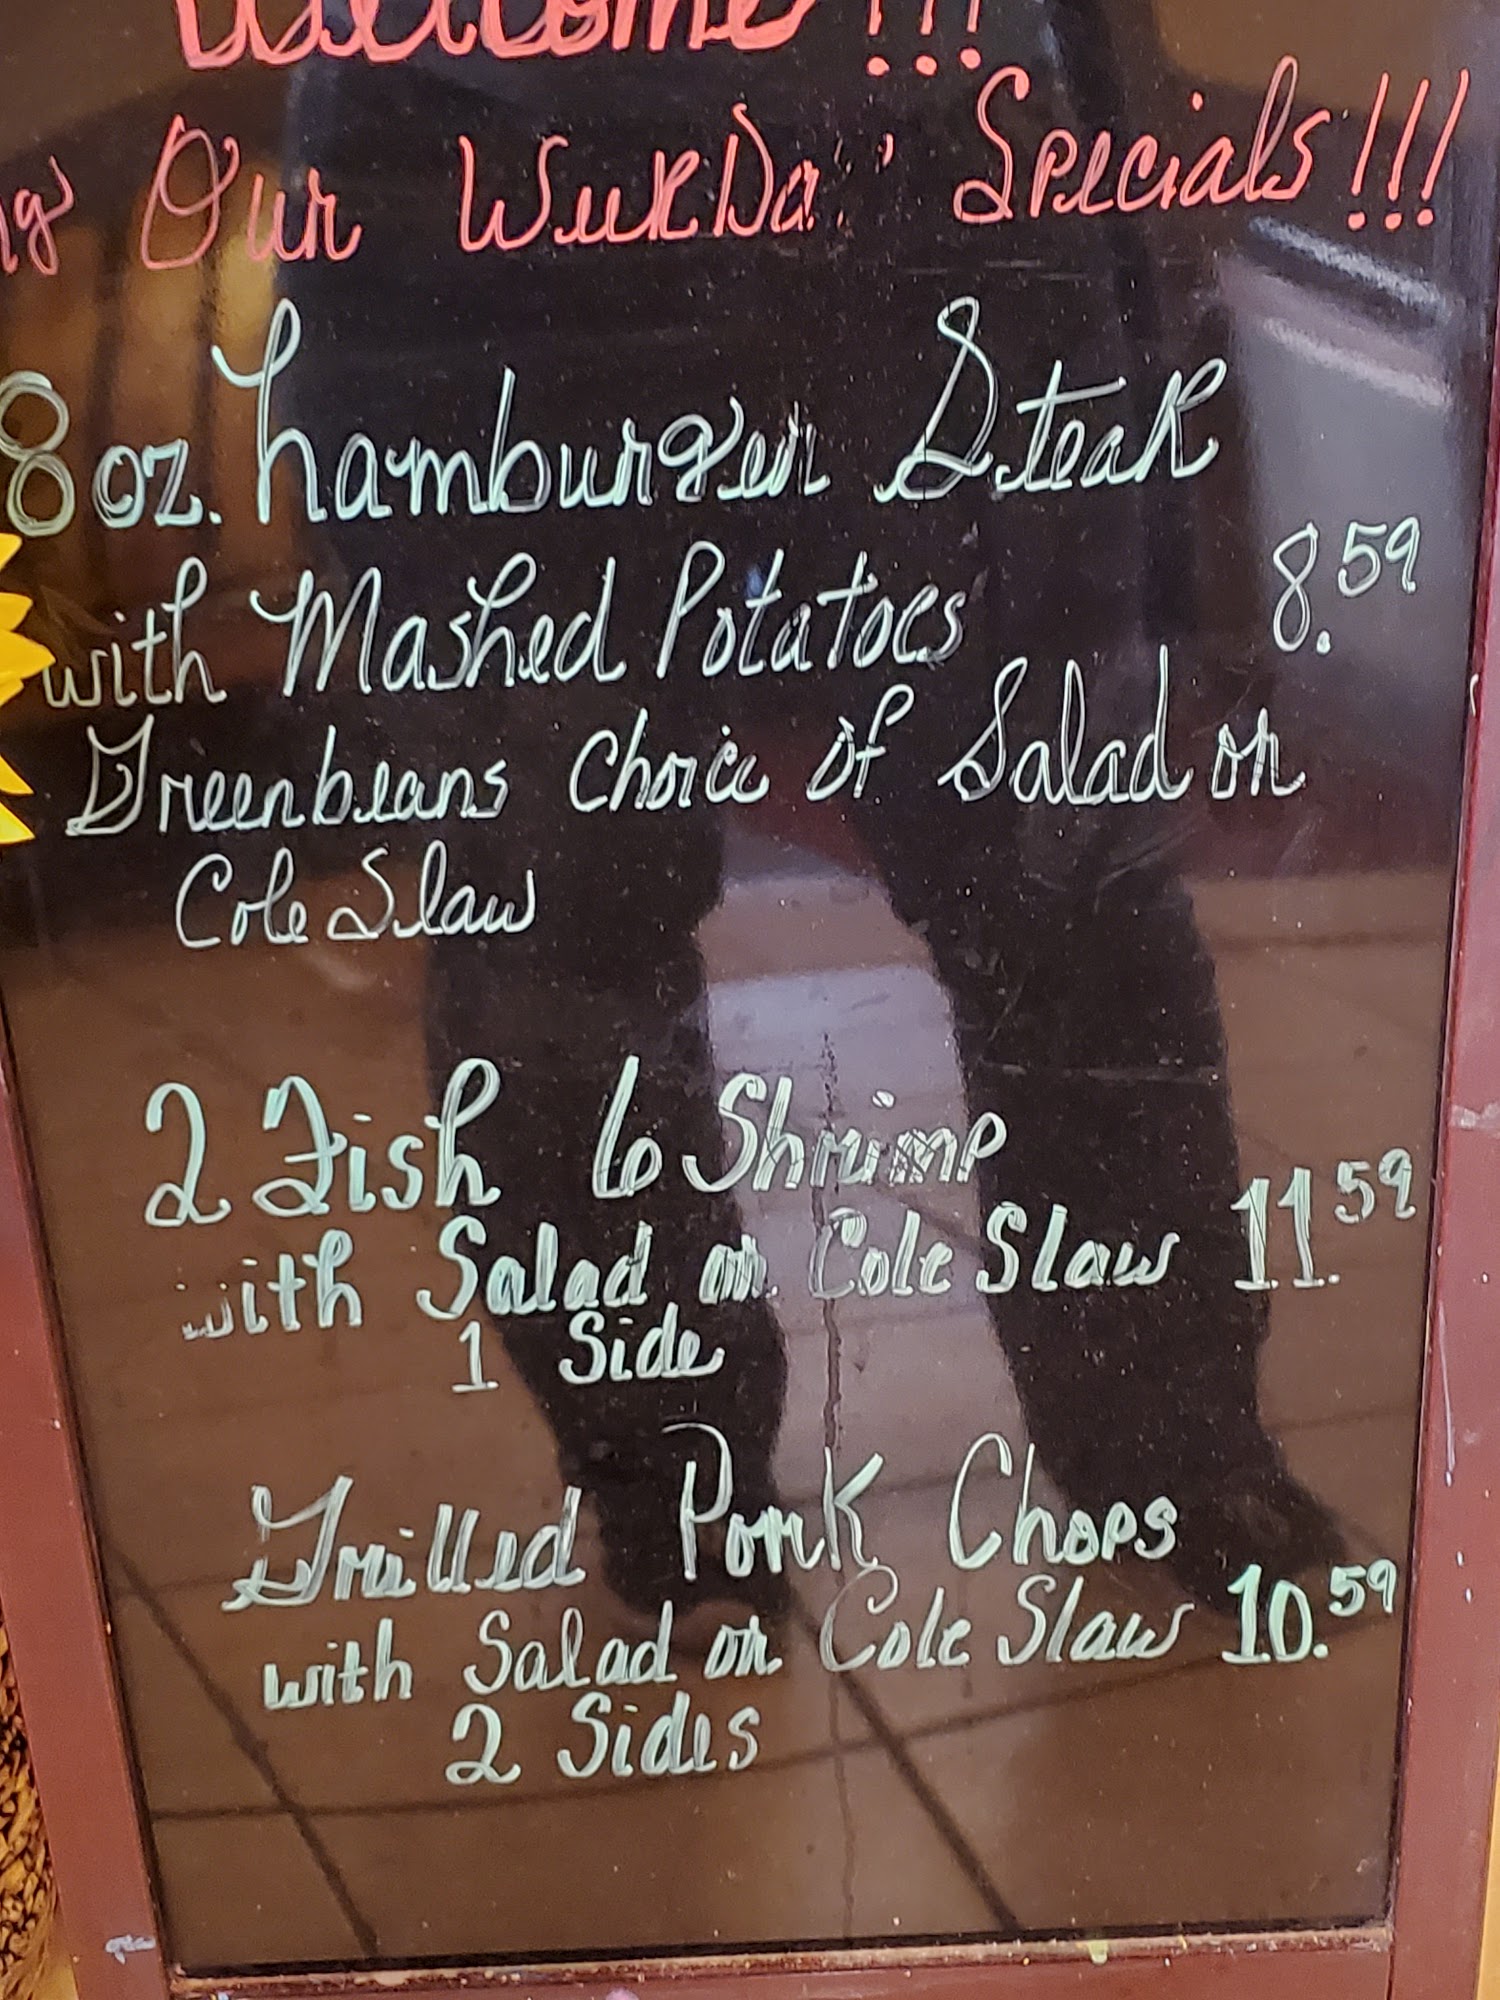 Welcome!!!
Our WeekDa' Specials!!!
8 oz. hamburger Steak
with Mashed Potatoes 8.59
Greenbeans Choice of Salad or
Cole Slaw
2 Fish 6 Shrimp
with Salad or Cole Slaw 11.59
1 Side
Grilled Pork Chops
with Salad or Cole Slaw 10.59
2 Sides